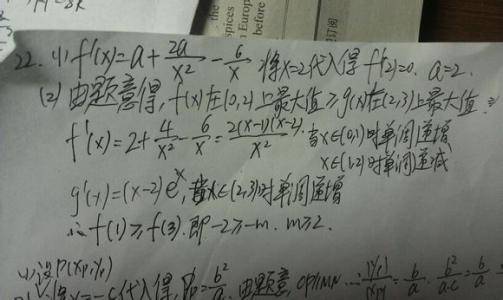 spices
n Europ
before
订阅
22. (1) f'(x)=a+2a/x²-6/x 将x=2代入得 f'(2)=0. a=2.
(2) 由题意得, f(x)在(0,2)上最大值≥g(x)在(2,3)上最大值.
f'(x)=2+4/x²-6/x=2(x-1)(x-2)/x² 当x∈(0,1)时单调递增
x∈(1,2)时单调递减
g'(x)=(x-2)eˣ, 当x∈(2,3)时单调递增
∴f(1)≥f(3). 即-2≥-m. m≥2.
(1) 设P(x₁,y₁)
x=-c代入得, b²/a 由题意 OP∥MN b/a. b²/ac=b/a